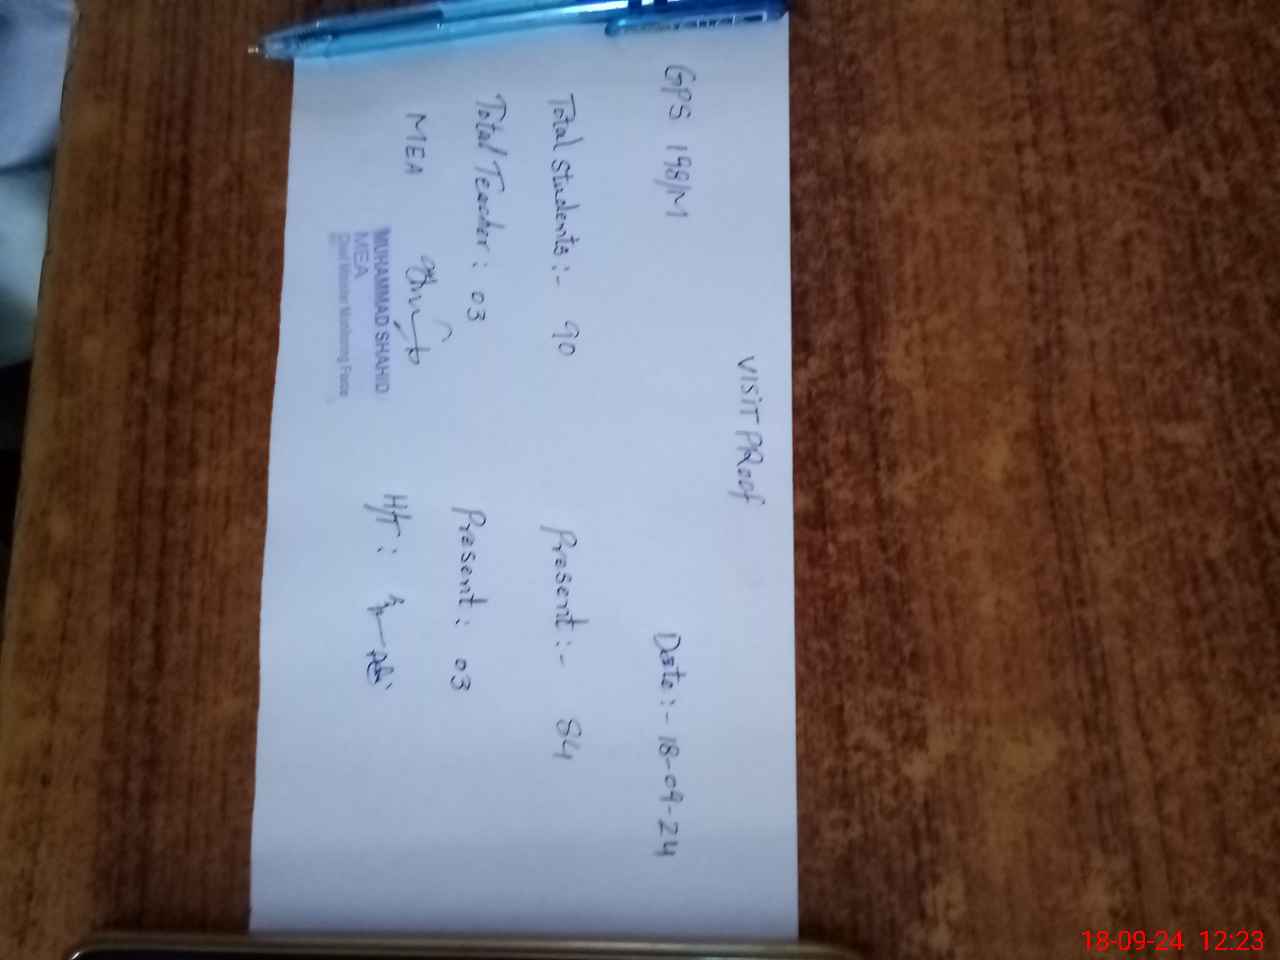 VISIT PRoof
GPS 198/M Date:- 18-09-24
Total Students:- 90 Present:- 84
Total Teacher: 03 Present: 03
MEA H/T:
MUHAMMAD SHAHID
MEA
Chief Minister Monitoring Force
18-09-24 12:23